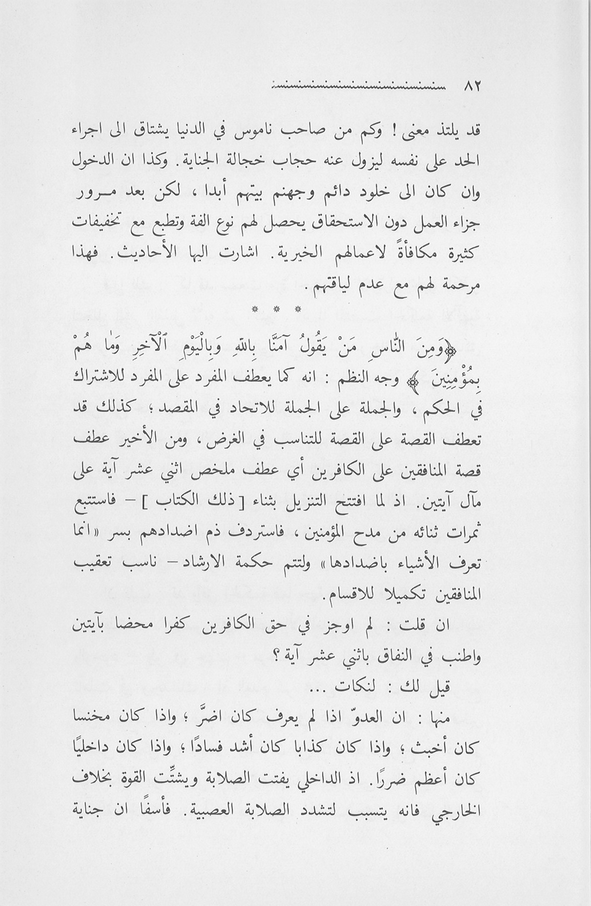 ٨٢
قد يلتذ معنى! وكم من صاحب ناموس في الدنيا يشتاق الى اجراء
الحد على نفسه ليزول عنه حجاب خجالة الجناية. وكذا ان الدخول
وان كان الى خلود دائم وجهنم بيتهم أبدا، لكن بعد مـرور
جزاء العمل دون الاستحقاق يحصل لهم نوع الفة وتطبع مع تخفيفات
كثيرة مكافأةً لاعمالهم الخيرية. اشارت اليها الأحاديث. فهذا
مرحمة لهم مع عدم لياقتهم.
* * *
﴿وَمِنَ النَّاسِ مَنْ يَقُولُ آمَنَّا بِاللّٰهِ وَبِالْيَوْمِ الْاٰخِرِ وَمَا هُمْ
بِمُؤْمِنِينَ﴾ وجه النظم: انه كما يعطف المفرد على المفرد للاشتراك
في الحكم، والجملة على الجملة للاتحاد في المقصد؛ كذلك قد
تعطف القصة على القصة للتناسب في الغرض، ومن الأخير عطف
قصة المنافقين على الكافرين أي عطف ملخص اثني عشر آية على
مآل آيتين. اذ لما افتتح التنزيل بثناء [ذلك الكتاب] – فاستتبع
ثمرات ثنائه من مدح المؤمنين، فاستردف ذم اضدادهم بسر «انما
تعرف الأشياء باضدادها» ولتتم حكمة الارشاد – ناسب تعقيب
المنافقين تكميلا للاقسام.
ان قلت: لم اوجز في حق الكافرين كفرا محضا بآيتين
واطنب في النفاق باثني عشر آية؟
قيل لك: لنكات ...
منها: ان العدوّ اذا لم يعرف كان اضرَّ؛ واذا كان مخنسا
كان أخبث؛ واذا كان كذابا كان أشد فسادًا؛ واذا كان داخليًا
كان أعظم ضررًا. اذ الداخلي يفتت الصلابة ويشتِّت القوة بخلاف
الخارجي فانه يتسبب لتشدد الصلابة العصبية. فأسفًا ان جناية